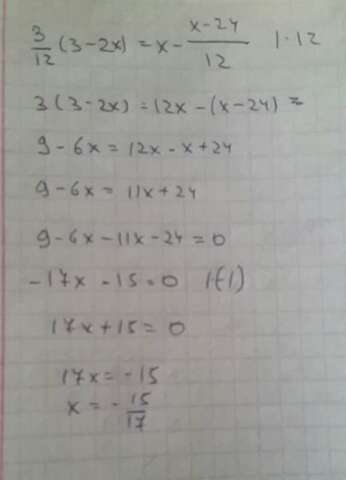 3/12 (3-2x) = x - (x-24)/12 | ·12
3(3-2x) = 12x - (x-24) =
9 - 6x = 12x - x + 24
9 - 6x = 11x + 24
9 - 6x - 11x - 24 = 0
-17x - 15 = 0 |(-1)
17x + 15 = 0
17x = -15
x = - 15/17